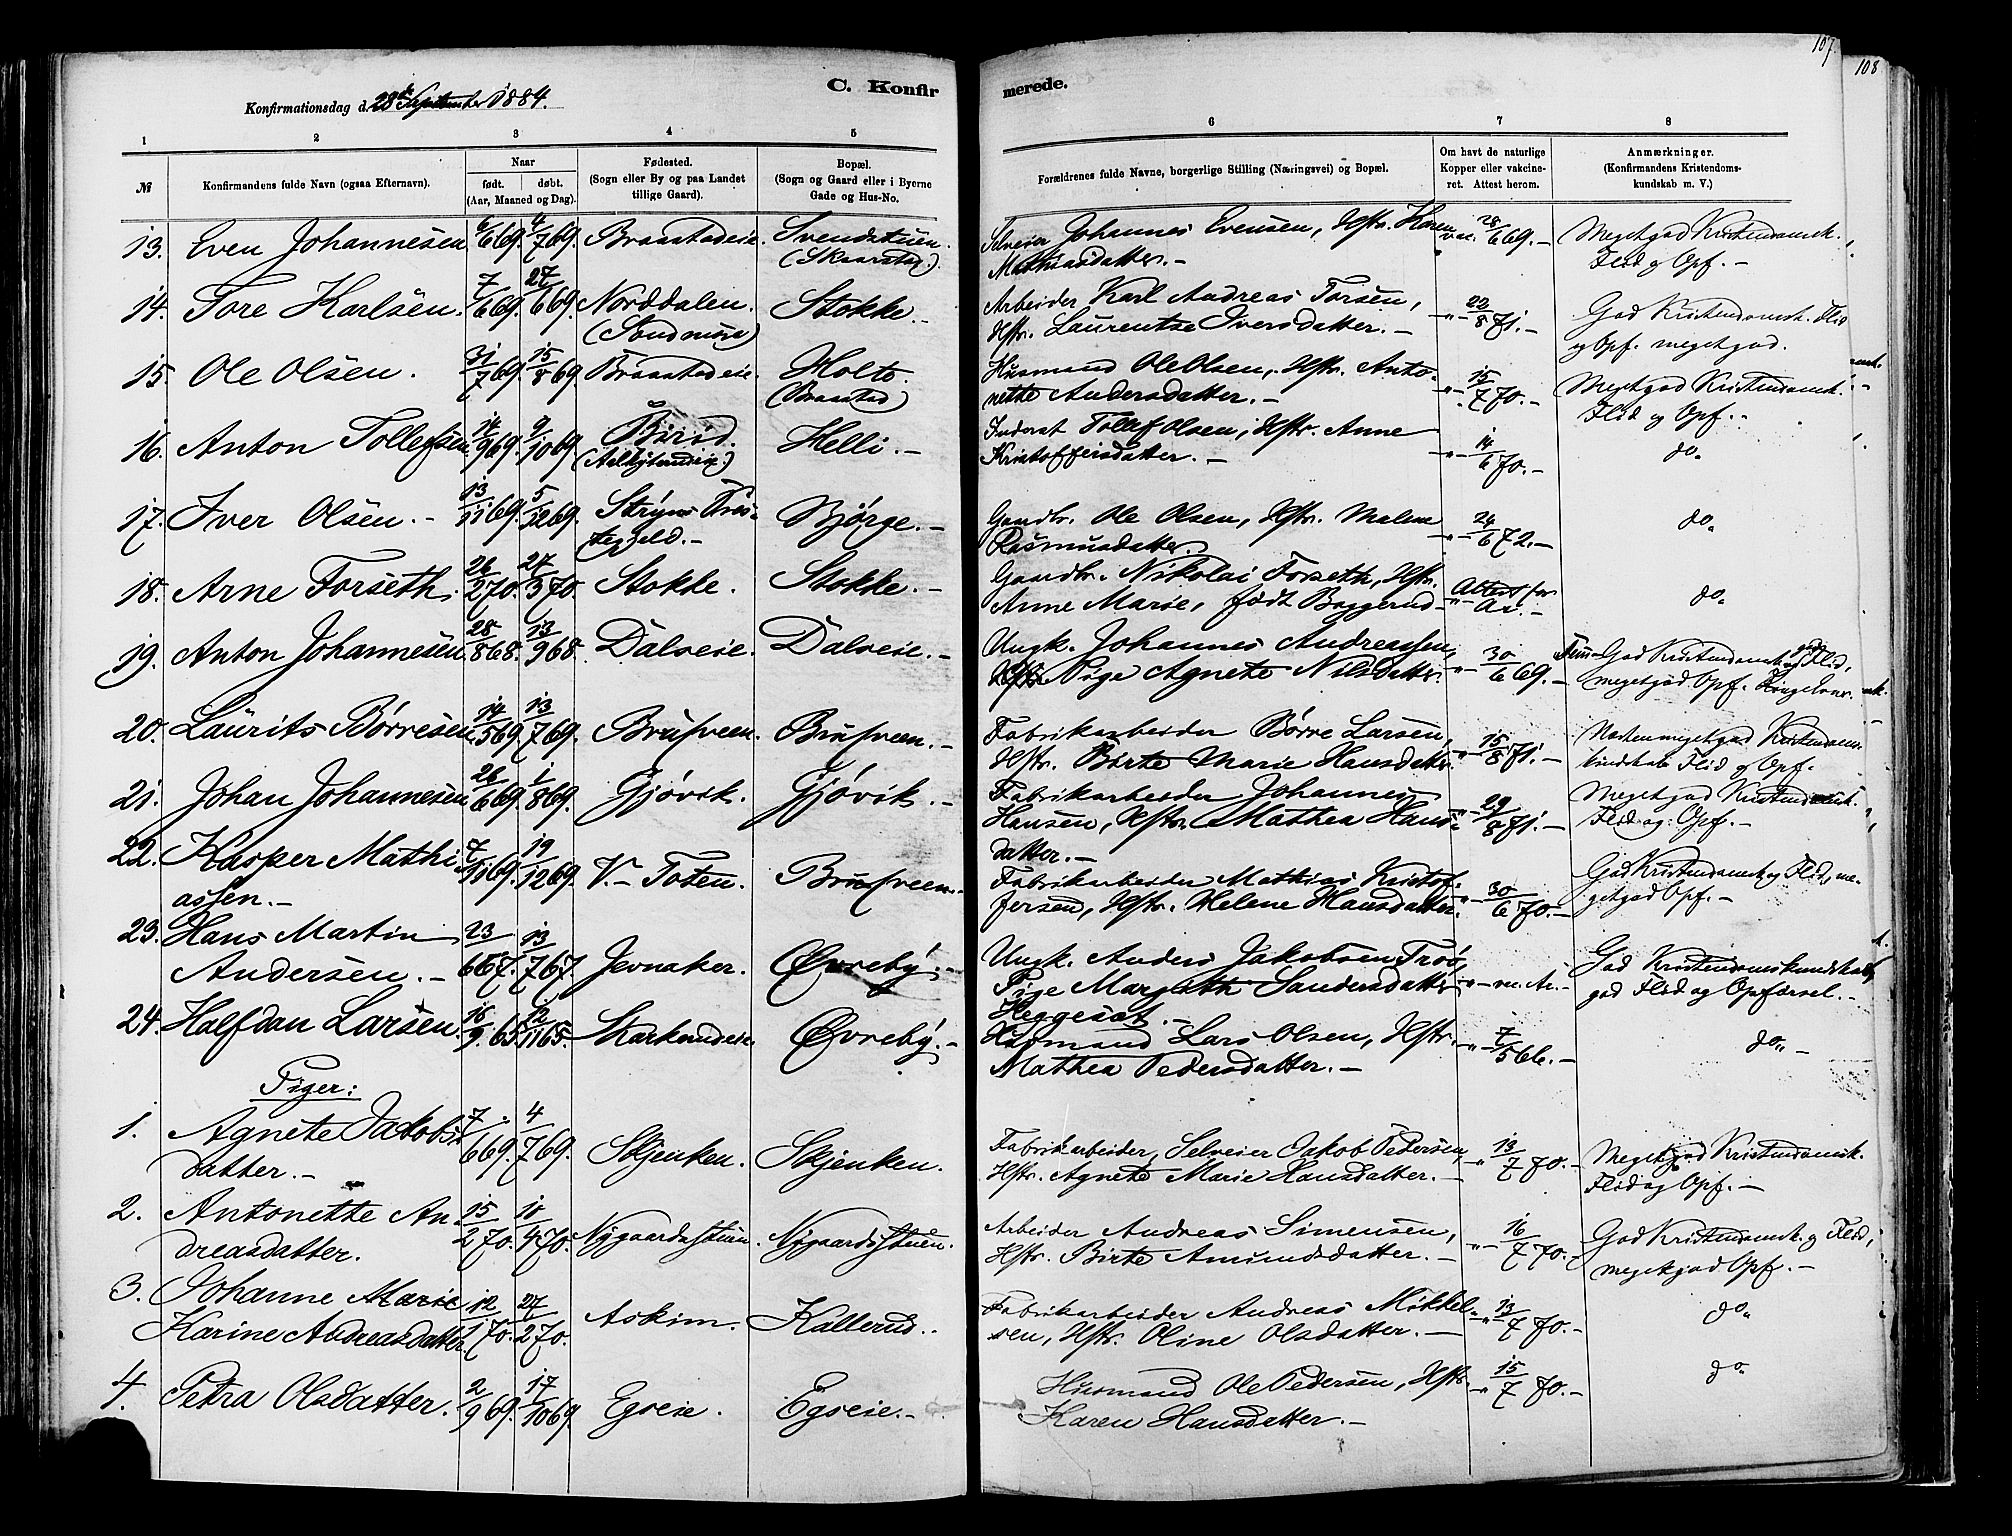 107.
108
Konfirmationsdag d. 28de September 1884.
C. Konfirmerede.
1 2 3 4 5 6 7 8
№
Konfirmandens fulde Navn (ogsaa Efternavn).
Naar
født. døbt.
(Aar, Maaned og Dag).
Fødested.
(Sogn eller By og paa Landet
tillige Gaard).
Bopæl.
(Sogn og Gaard eller i Byerne
Gade og Hus-No.
Forældrenes fulde Navne, borgerlige Stilling (Næringsvei) og Bopæl.
Om havt de naturlige
Kopper eller vakcine-
ret. Attest herom.
Anmærkninger.
(Konfirmandens Kristendoms-
kundskab m. V.)
13. Even Johannesen 6/6 69. 4/7 69. Braastadeie. Svendstuen. (Skaarstad.) Selveier Johannes Evensen, Hstr. Karen Mathiasdatter.- vac. 28/6 69.- Megetgod Kristendomsk. Flid og Opf.-
14. Tore Karlsen. 7/6 69. 27/6 69. Norddalen. (Søndmøre) Stokke.- Arbeider Karl Andreas Torsen, Hstr. Laurentse Iversdatter.- -"- 22/8 71.- God Kristendomsk. Flid og Opf. megetgod.
15. Ole Olsen. 31/7 69. 15/8 69. Braastadeie. Holte. (Braastad) Husmand Ole Olsen, Hstr. Antonette Andersdatter.- -"- 15/7 70.- Megetgod Kristendomsk. Flid og Opf.-
16. Anton Tollefsen 14/9 69. 9/10 69 Birid. Helli.- Inderst Tollef Olsen, Hstr. Anne Kristoffersdatter.- -"- 14/6 70.- do.
17. Iver Olsen.- 13/11 69. 5/12 69. Stryns Præstegjeld.- Bjørge.- Gaardbr. Ole Olsen, Hstr. Malene Rasmusdatter. -"- 24/6 72.- do.
18. Arne Forseth. 26/2 70. 27/3 70 Stokke. Stokke.- Gaardbr. Nikolai Forseth, Hstr. Anne Marie, født Baggerud- -"- Attest for Ar.- do.
19. Anton Johannesen 28/8 68. 13/9 68. Dalseie. Dalseie.- Ungk. Johannes Andreassen, Pige Agnete Nilsdatter. -"- 30/6 69.- God Kristendomsk. og Flid, megetgod Opf.
20. Laurits Børresen 14/5 69 13/7 69. Brusveen. Brusveen.- Fabrikarbeider Børre Larsen, Hstr. Birte Marie Hansdatter. -"- 15/8 71.- Næsten megetgod Kristendomskundskab Flid og Opf.
21. Johan Johannesen 26/6 69. 1/8 69. Gjøvik. Gjøvik.- Fabrikarbeider Johannes Hansen, Hstr. Mathea Hansdatter.- -"- 29/8 71.- Megetgod Kristendomsk. Flid og Opf.-
22. Kasper Mathiassen.- 7/11 69. 19/12 69. V.-Toten. Brusveen.- Fabrikarbeider Mathias Kristoffersen, Hstr. Helene Hansdatter. -"- 30/6 70.- God Kristendomsk og Flid, megetgod Opf.-
23. Hans Martin Andersen.- 23/6 67. 13/7 67. Jevnaker. Øvreby.- Ungk. Anders Jakobsen Trøo, Pige Margith Sandersdatter Heggesat.- -"- vac. Ar.- God Kristendomskundskab, god Flid og Opførsel.-
24. Halfdan Larsen. 15/9 65 12/11 65. Skarkerudeie. Øvreby.- Husmand Lars Olsen, Hstr. Mathea Pedersdatter.- -"- 7/5 66.- do.-
Piger:
1. Agnete Jakobsdatter.- 7/6 69. 4/7 69. Skjenken. Skjenken. Fabrikarbeider, Selveier Jakob Pedersen, Hstr. Agnete Marie Hansdatter.- -"- 13/7 70.- Megetgod Kristendomsk. Flid og Opf.-
2. Antonette Andreasdatter. 15/2 70. 10/4 70. Nygaardsstuen. Nygaardsstuen. Arbeider Andreas Simensen, Hstr. Birte Amundsdatter.- -"- 16/7 70.- God Kristendomsk. og Flid, megetgod Opf.-
3. Johanne Marie Karine Andreasdatter. 12/1 70. 27/2 70. Askim. Kallerud.. Fabrikarbeider Andreas Mikkelsen, Hstr. Oline Olsdatter.- -"- 13/7 70.- do.
4. Petra Olsdatter. 2/9 69. 17/10 69. Egseie. Egseie.- Husmand Ole Pedersen, Hstr. Karen Hansdatter.- -"- 15/7 70.- do.